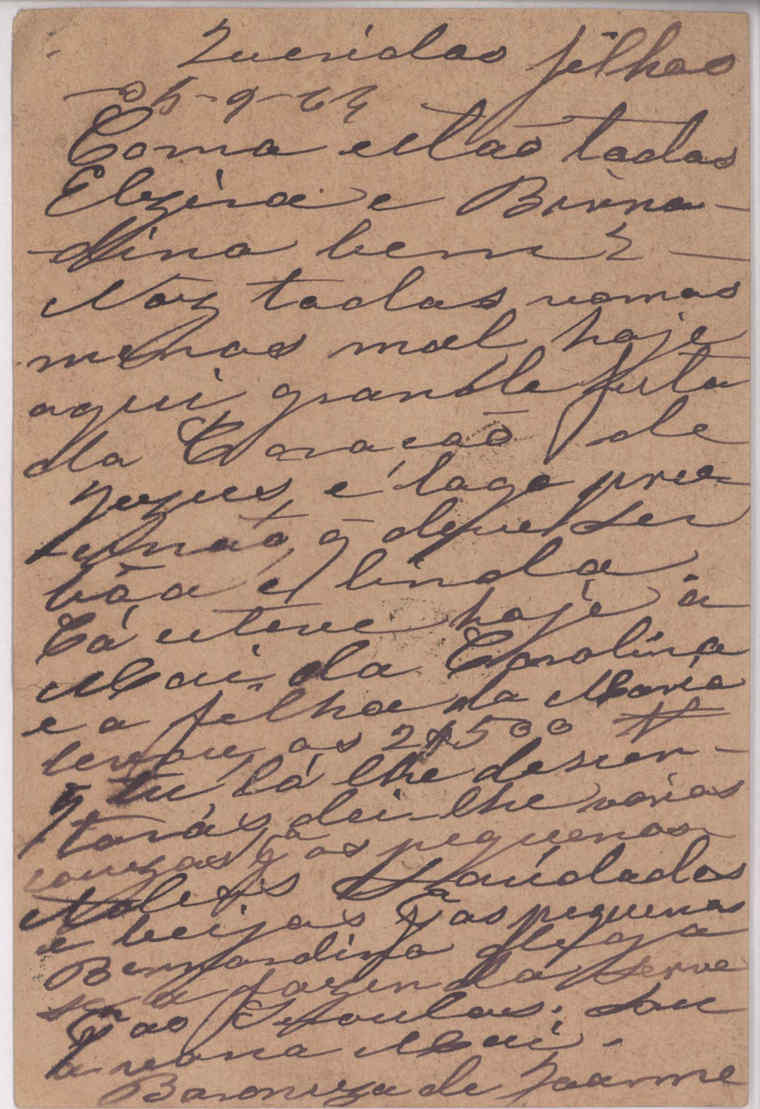 Queridas filhas
5-9-
Como estão todas
Elzira e Berna-
dina bem?
Nós todas vamos
menos mal hoje
aqui grande festa
do Coração de
Jezus, e logo pro
cissão q deve ser
bôa e linda
Cá esteve hoje a
Mai da Carolina
e a filha da Maria
levou os 2$500
tu lá lhe descon-
tarás dei-lhe varias
couzas pª os pequenos
Saúdades
e beijos pª os pequenos
Bernardina
a fazenda serve
pª ao Sou
a vona Mai.
Baroneza de